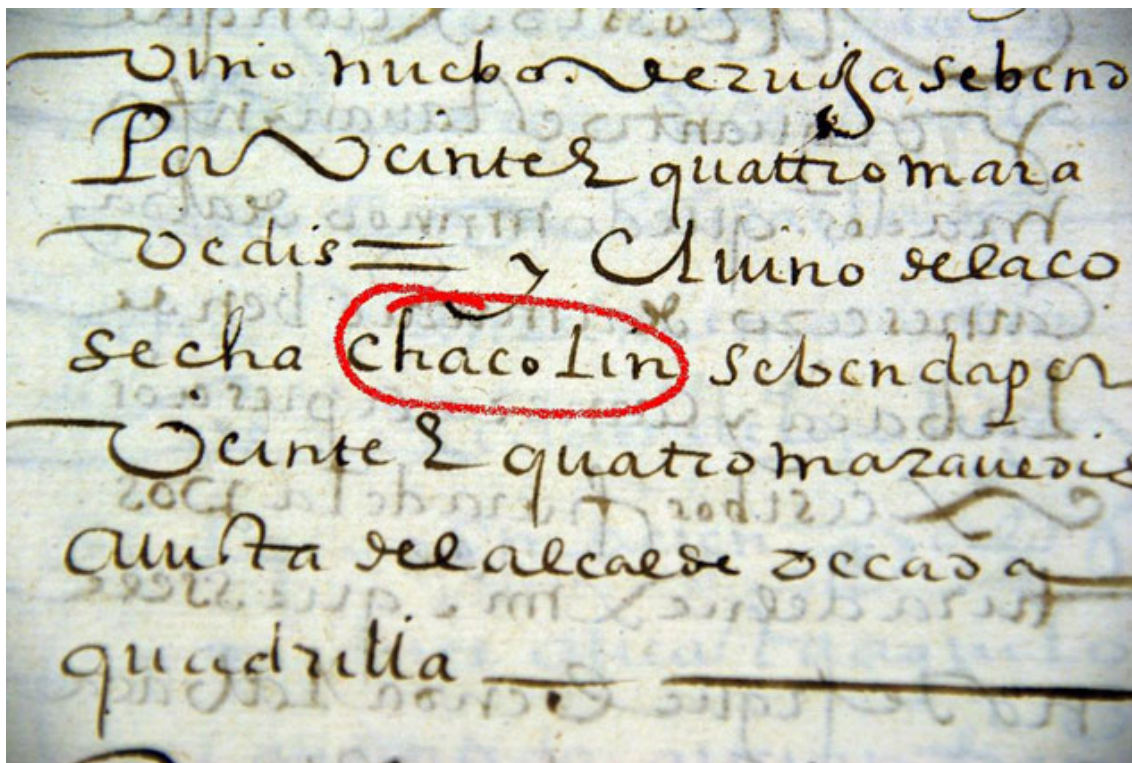 Vino nuebo sebend
Por Veinte & quattro mara
vedis = y el uino de la co
secha chacolin se benda por
Veinte & quatro marauedis
a uista del alcalde de cada
quadrilla